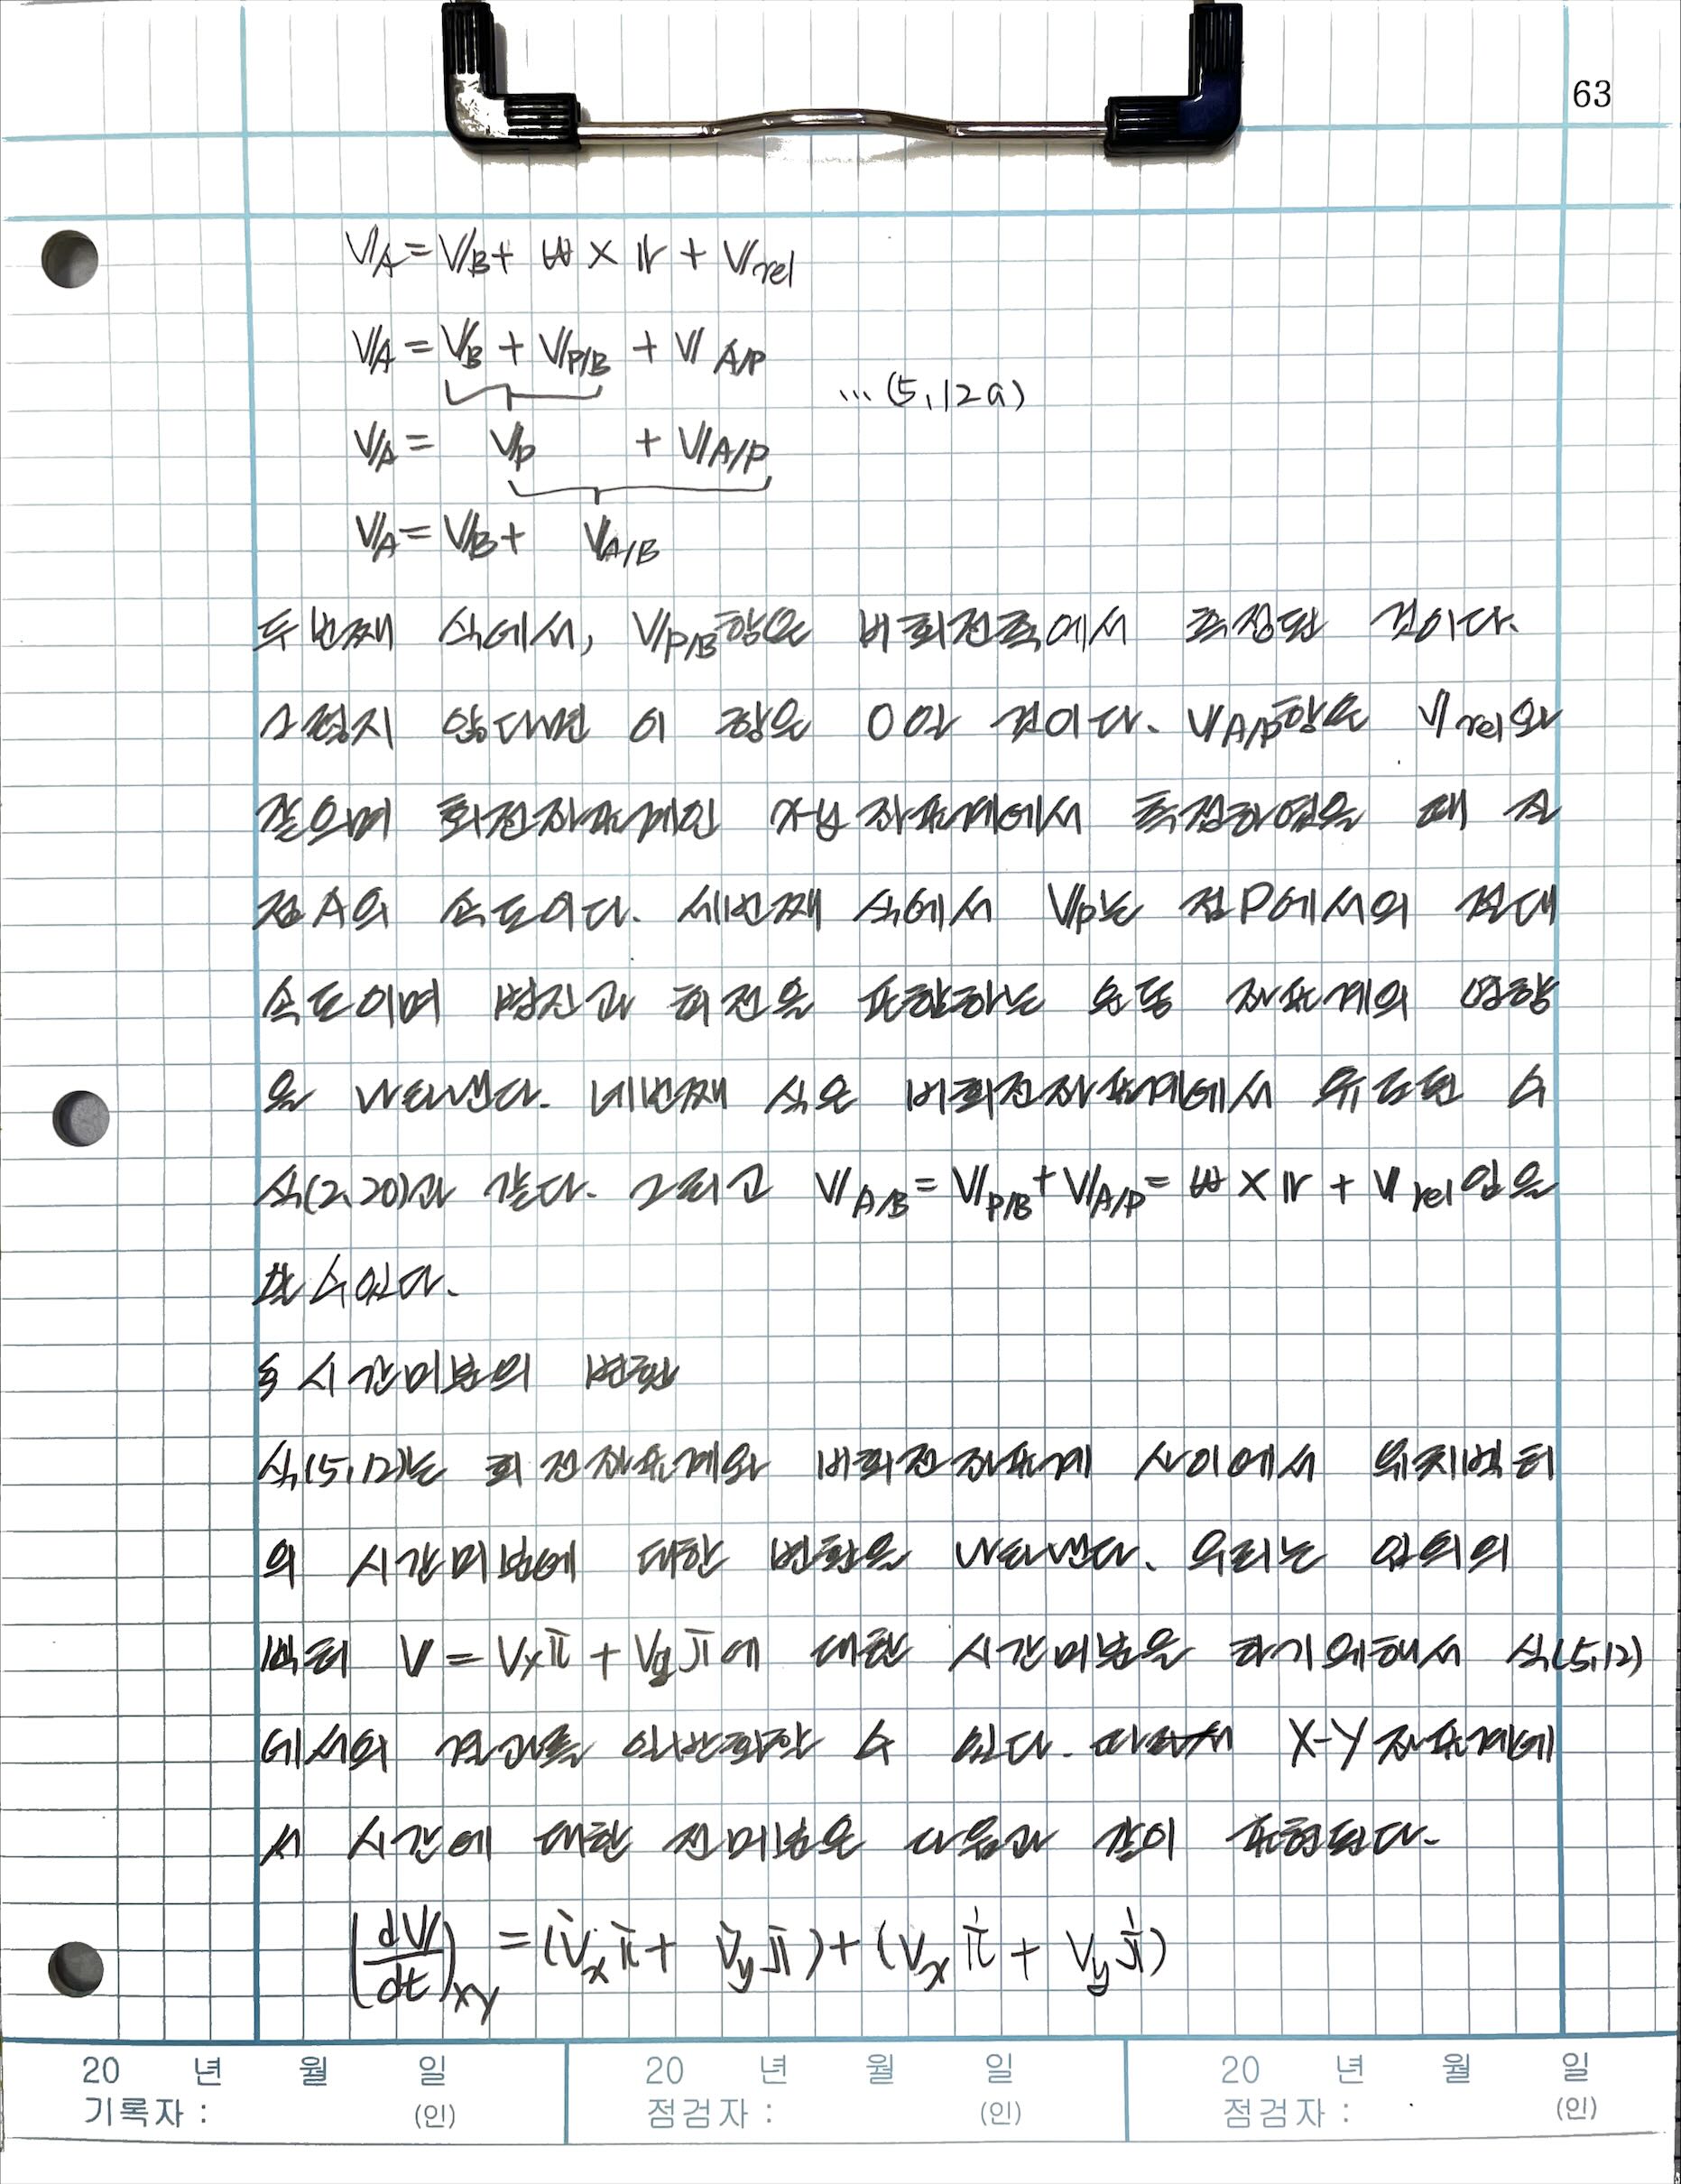 63
V_A = V_B + ω × r + V_rel
V_A = V_B + V_P/B + V_A/P
...(5,12a)
V_A = V_P + V_A/P
V_A = V_B + V_A/B
두번째 식에서, V_P/B항은 비회전축에서 측정된 것이다.
그렇지 않다면 이 항은 0일 것이다. V_A/P항은 V_rel와
같으며 회전좌표계인 x-y 좌표계에서 측정하였을 때
점A의 속도이다. 세번째 식에서 V_P는 점P에서의 절대
속도이며 병진과 회전을 포함하는 운동 좌표계의 영향
을 나타낸다. 네번째 식은 비회전좌표계에서 유도된 수
식(2,20)과 같다. 그리고 V_A/B = V_P/B + V_A/P = ω × r + V_rel 임을
알 수 있다.
§ 시간미분의 변환
식(5,12)는 회전좌표계와 비회전좌표계 사이에서 위치벡터
의 시간미분에 대한 변환을 나타낸다. 우리는 임의의
벡터 V = V_x i + V_y j에 대한 시간미분을 하기위해서 식(5,12)
에서의 결과를 일반화할 수 있다. 따라서 X-Y 좌표계에
서 시간에 대한 전미분은 다음과 같이 표현된다.
(dV/dt)_XY = (V̇_x i + V̇_y j) + (V_x i̇ + V_y j̇)
20 년 월 일 20 년 월 일 20 년 월 일
기록자 : (인) 점검자 : (인) 점검자 : (인)